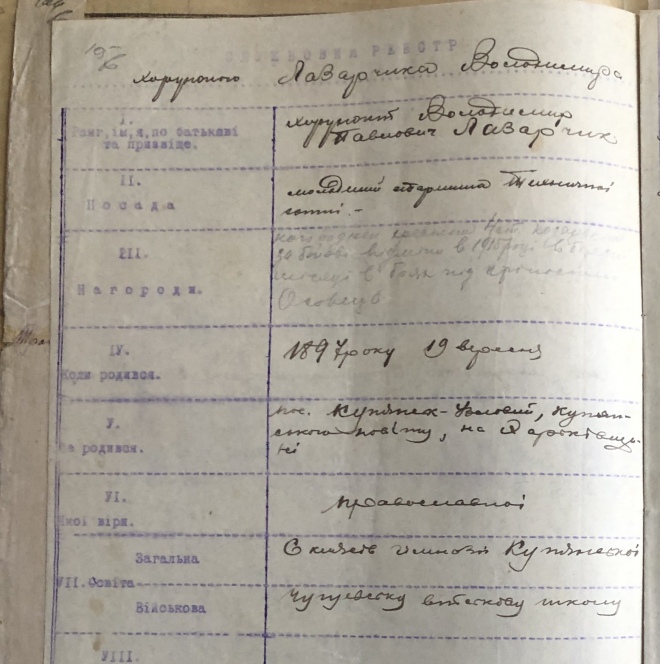 СЛУЖБОВИЙ РЕЕСТР
Хорунжого Лазарчика Володимира
I.
Ранг, ім, я, по батькові
та прізвище.
Хорунжий Володимир
Павлович Лазарчик
II.
Посада
молодший старшина Технічної
сотні -
III.
Нагороди.
за бойові в 1915 році в
в боях під
Осовець
IУ.
Коли родився.
1897 року 19 вересня
У.
Де родився.
пос. Купянск-Узловий, Купян-
ського повіту, на Харківщи-
ні
УI.
Якої віри.
православної
УII. Освіта
Загальна
6 клясів Купянської
Військова
Чугуевську військову школу
УIII.